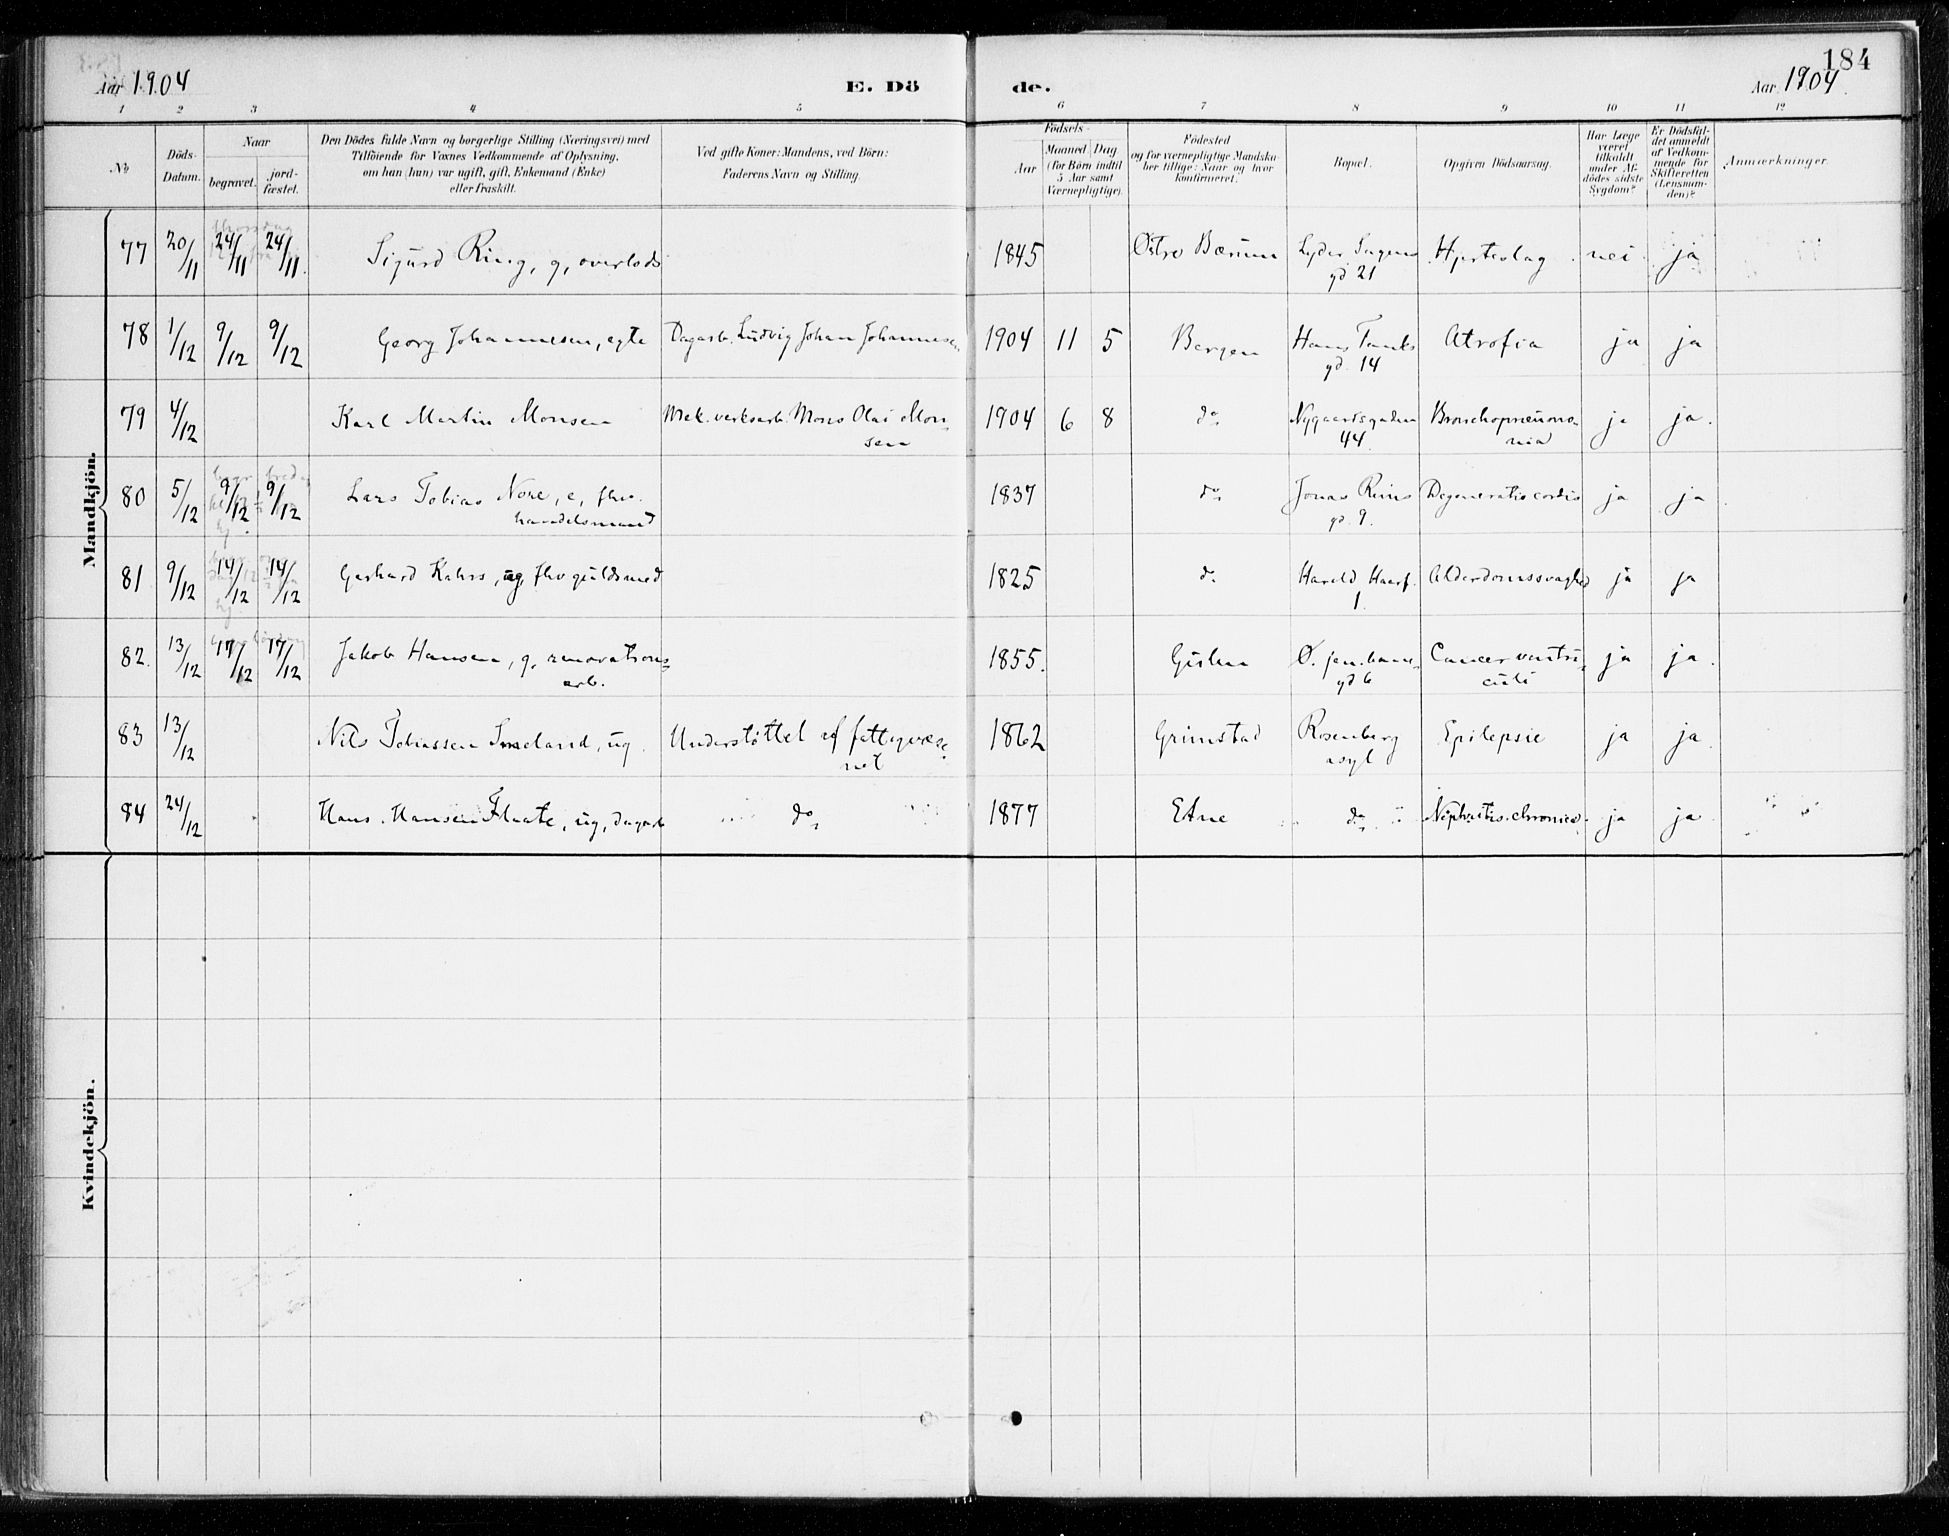 184
Aar 1904 E. Dö de. Aar 1904
1 2 3 4 5 6 7 8 9 10 11 12
No
Döds-Datum.
Naar
begravet. jordfæstet.
Den Dödes fulde Navn og borgerlige Stilling (Næringsvei) med
Tilföiende for Voxnes Vedkommende af Oplysning,
om han (hun) var ugift, gift, Enkemand (Enke)
eller fraskilt.
Ved gifte Koner: Mandens, ved Börn:
Faderens Navn og Stilling.
Födsels-
Aar Maaned Dag
(for Börn indtil
5 Aar samt
Værnepligtige).
Födested
og for værnepligtige Mandska-
ber tillige: Naar og hvor
konfirmeret.
Bopæl.
Opgiven Dödsaarsag.
Har Læge
været
tilkaldt
under Af-
dödes sidste
Sygdom?
Er Dödsfal-
det anmeldt
af Vedkom-
mende for
Skifteretten
(Lensman-
den)?
Anmærkninger.
Mandkjön.
77 20/11 24/11 24/11. Sigurd Ring, g, overlods 1845 Östre Bærum Lyder Sagens Hjerteslag. nei ja
gd 21
78 1/12 9/12 9/12 Georg Johannesen, egte Dagarb. Ludvig Johan Johannesen. 1904 11 5 Bergen Hans Tanks Atrofia ja ja
gd. 14
79 4/12 Karl Martin Monsen Mek. verksarb. Mons Olai Mon- 1904 6 8 do Nygaardsgaden Bronchopneumo- ja ja.
sen 44 nia
80 5/12 9/12 9/12 Lars Tobias Nore, e, fhv. 1837 do Jonas Reins Degeneratio cordis ja ja
handelsmand gd. 9.
81 9/12 14/12 14/12 Gerhard Kahrs, ug, fhv guldsmed 1825 do Harald Haarf. Alderdomssvaghed ja ja
1.
82. 13/12 17/12 17/12 Jakob Hansen, g, renovations- 1855. Ø. jern.bane- Cancer ventri- ja ja.
arb. gd 6 culi
83 13/12 Nils Tobiassen ug. Understöttet af fattigvæse- 1862 Grimstad Rosenberg Epilepsie ja ja.
net asyl
84 24/12 Hans Hansen Flaate, ug, dagarb do 1877 Etne do Nephritis chronica. ja ja
Kvindekjön.